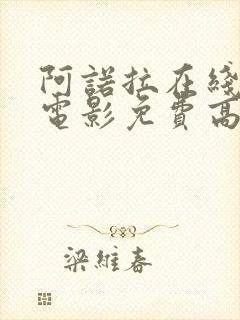 阿諾拉在綫
電影免費高
梁維春